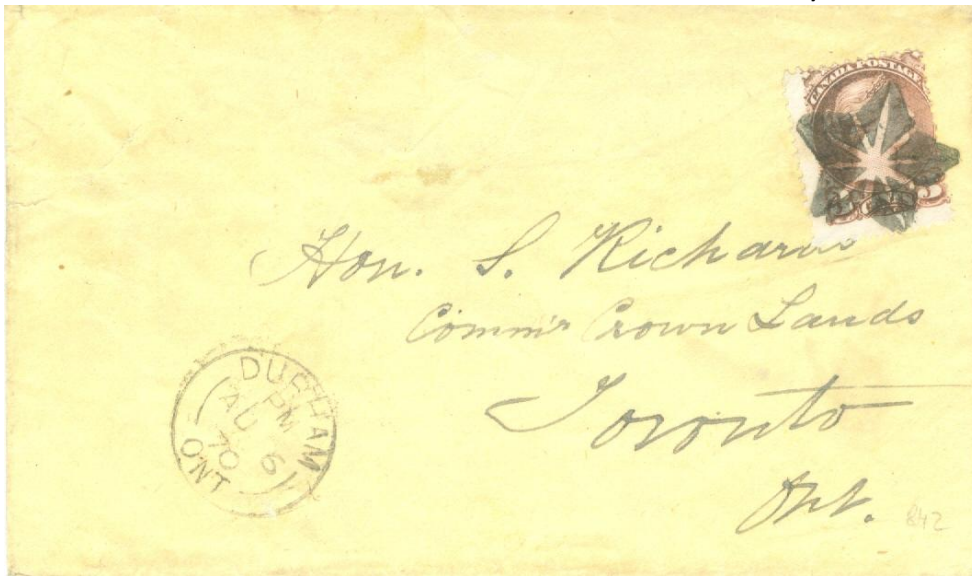 CANADA POSTAGE
Hon. S. Richards
Comm'r Crown Lands
Toronto
Ont.
DURHAM
PM
AU 6
70
ONT
842